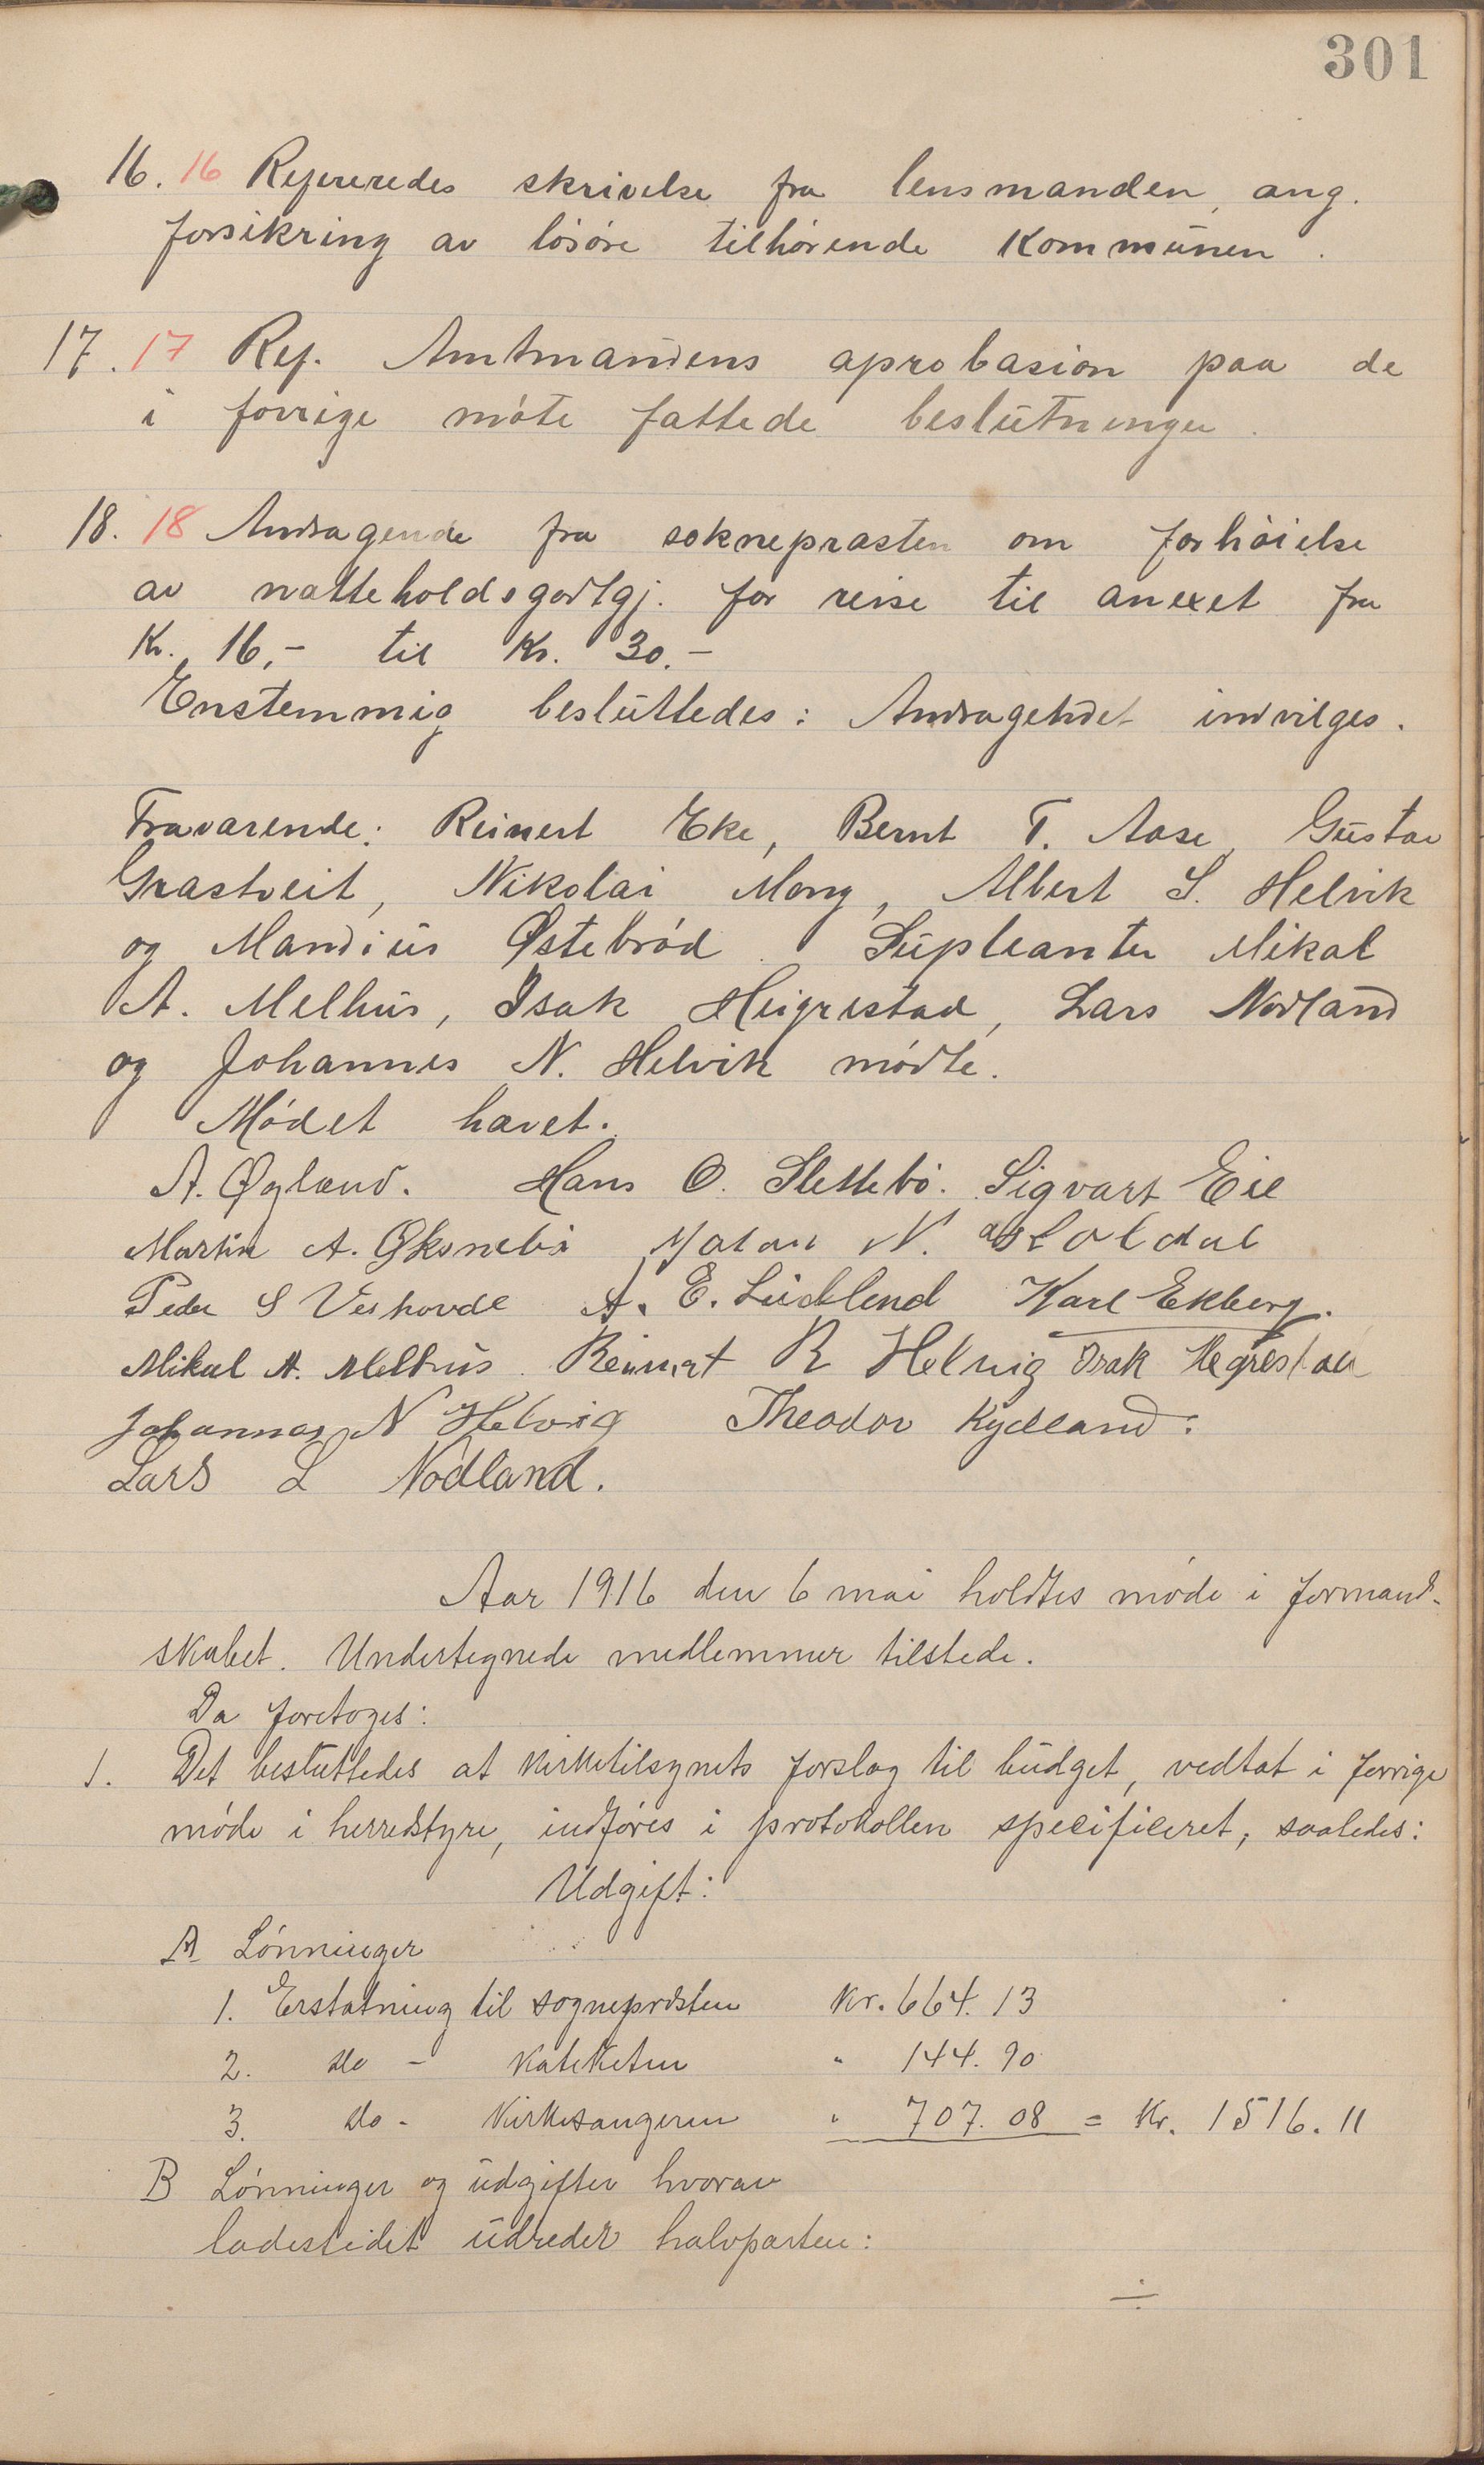 301
16. 16 Refereredes skrivelse fra lensmanden, ang.
forsikring av lösöre tilhörende kommunen.
17. 17 Ref. Amtmandens aprobasion paa de
i forrige möte fattede beslutninger.
18. 18 Andragende fra sokneprasten om forhöielse
av natteholdsgodtgj. for reise til anexet fra
Kr. 16,- til Kr. 30.-
Enstemmig besluttedes: Andragendet indvilges.
Fraværende: Reinert Eke, Bernt T. Aase, Gustav
Grastveit, Nikolai Mong, Albert S. Helvik
og Mandius Østebröd. Supleanter Mikal
A. Melhus, Isak Heigrestad, Lars Nodland
og Johannes N. Helvik mödte.
Mödet hævet.
A. Øgland. Hans O. Slettebö. Sigvart Eie
Martin A. Øksnebö N.
Peder S Veshovde A. E. Lindland Karl Ekberg.
Mikal A. Melhus. Reinert R Helvig Isak Hegrestad
Johannes N Helvig Theodor Kydland.
Lars L Nodland.
Aar 1916 den 6 mai holdtes möde i formand-
skabet. Undertegnede medlemmer tilstede.
Da foretoges:
1. Det besluttedes at kirketilsynets forslag til budget, vedtat i forrige
möde i herredstyre, indföres i protokollen specificeret, saaledes:
Udgift:
A Lönninger
1. Erstatning til sogneprästen Kr. 664. 13
2. do - Kateketen " 144. 90
3. do - Kirkesangeren " 707. 08 = Kr. 1516. 11
B Lönninger og udgifter hvorav
ladestedet udreder halvparten:
÷